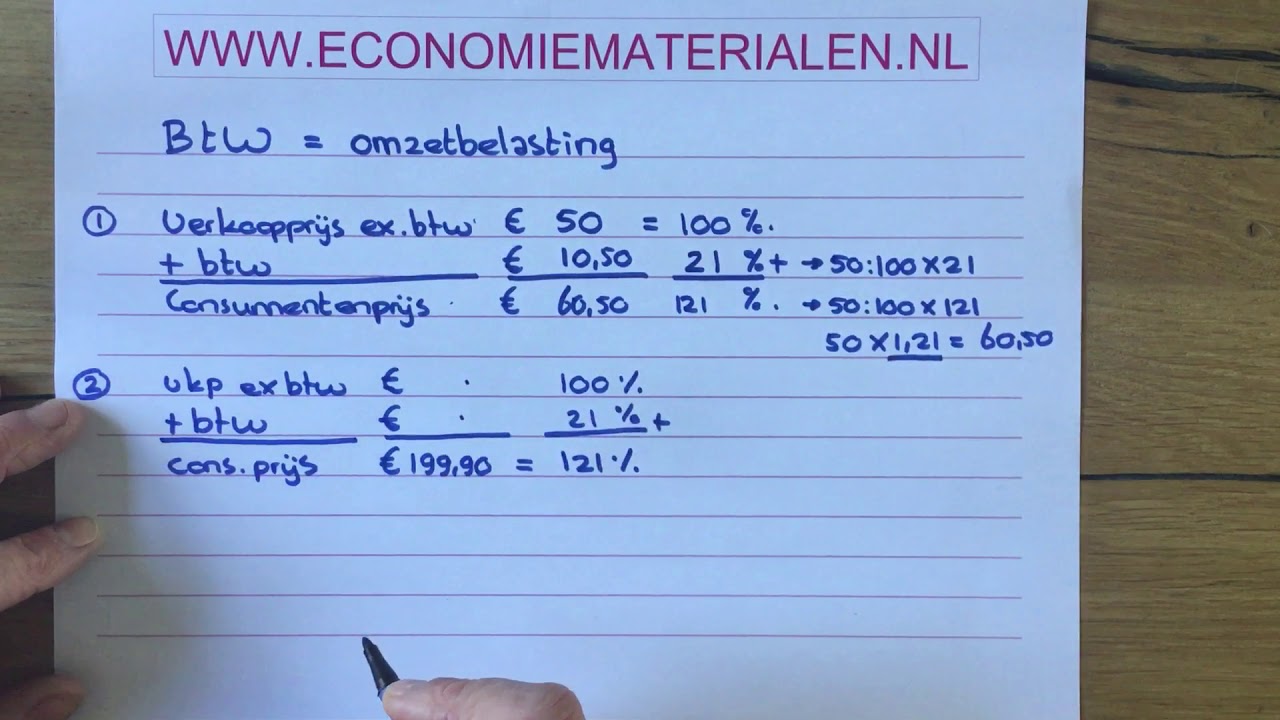 WWW.ECONOMIEMATERIALEN.NL
Btw = omzetbelasting
① Verkoopprijs ex.btw € 50 = 100 %.
+ btw € 10,50 21 % + → 50:100 x 21
Consumentenprijs € 60,50 121 %. → 50:100 x 121
50 x 1,21 = 60,50
② vkp ex btw € . 100 %.
+ btw € . 21 % +
cons. prijs € 199,90 = 121 %.